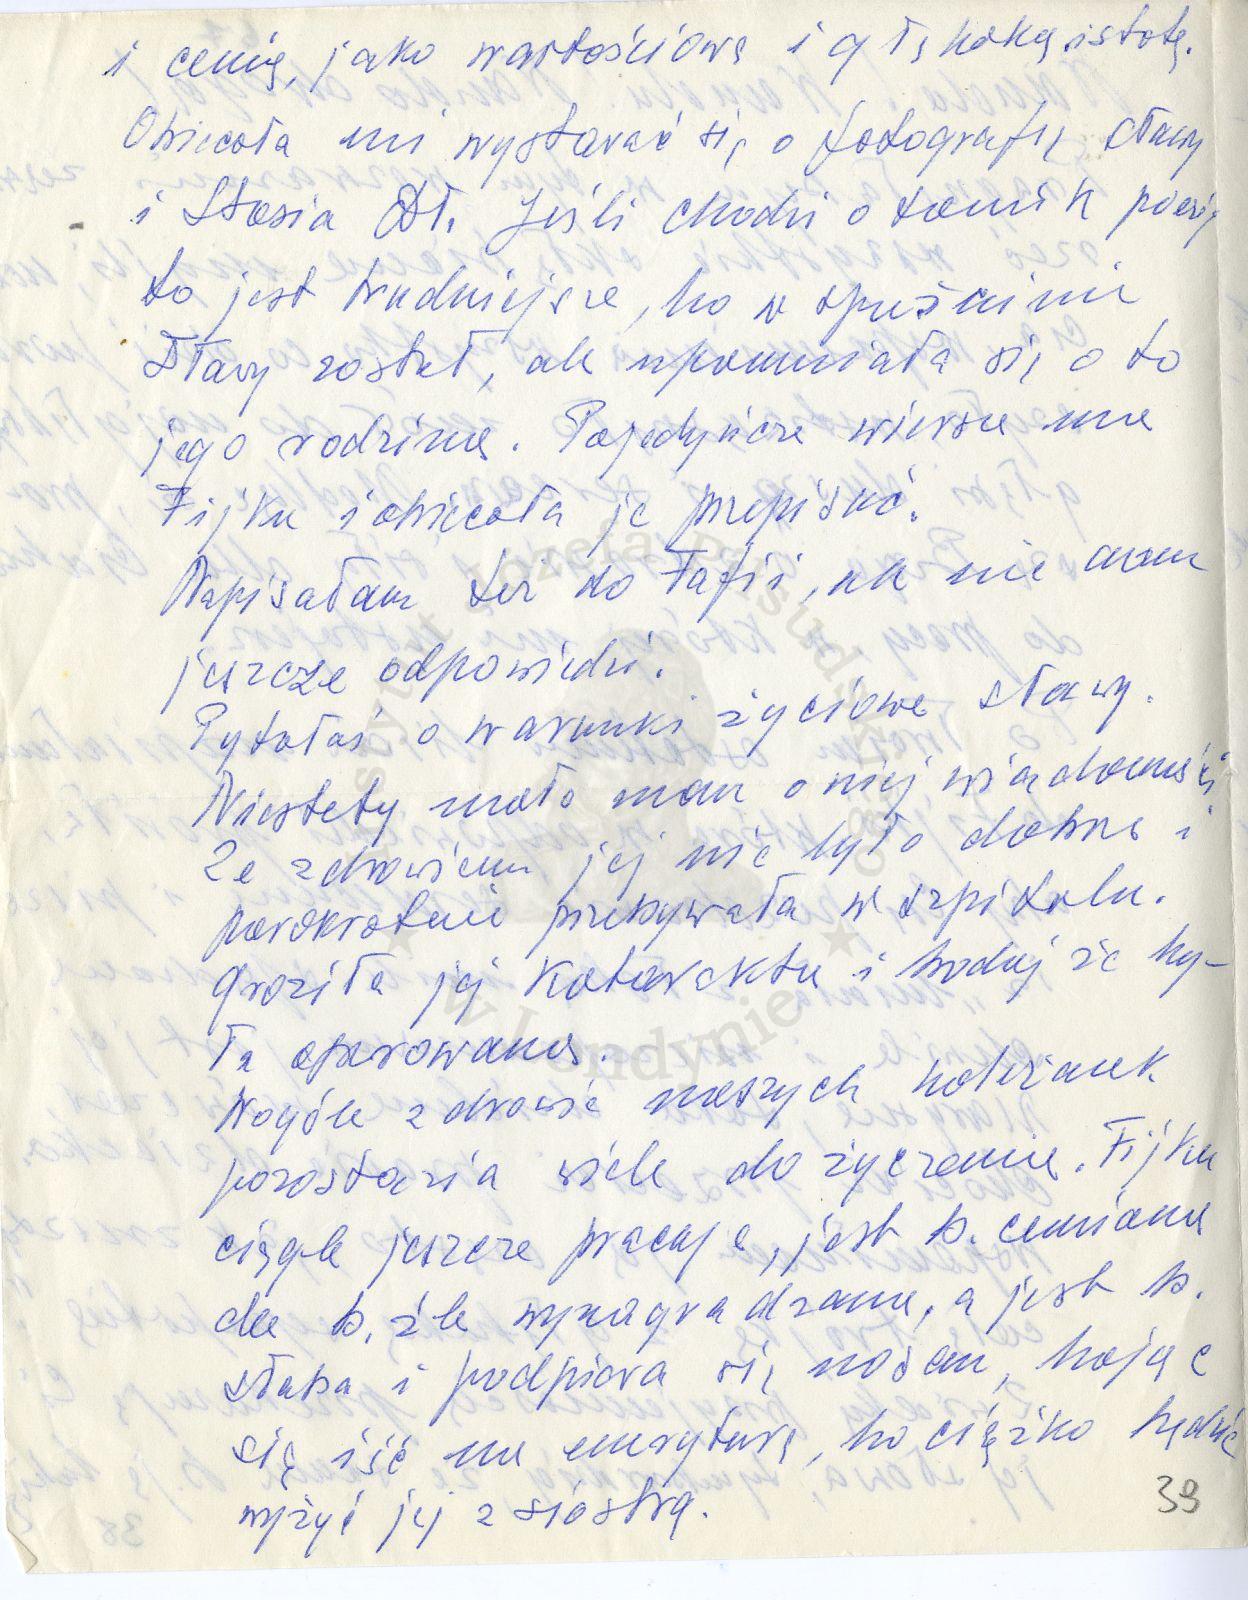 i cenię, jako wartościową i głęboką istotę.
Obiecała mi wystarać się o fotografię Sławy
i Stasia Dł. Jeśli chodzi o tomik poezji
to jest trudniejsze, bo w spuściźnie
Sławy został, ale upomniała się o to
jego rodzina. Pojedyńcze wiersze ma
Fijka i obiecała je przepisać.
Napisałam też do Tafii, ale nie mam
jeszcze odpowiedzi.
Pytałaś o warunki życiowe Sławy.
Niestety mało mam o niej wiadomości
Ze zdrowiem jej nie było dobrze i
parokrotnie przebywała w szpitalu.
Groziła jej katarakta i bodaj że by-
ła operowana.
Wogóle zdrowie naszych koleżanek
pozostawia wiele do życzenia. Fijka
ciągle jeszcze pracuje, jest b. ceniana
ale b. źle wynagradzana, a jest b.
słaba i podpiera się nosem, bojąc
się iść na emeryturę, bo ciężko będzie
wyżyć jej z siostrą.
39
Instytut Józefa Piłsudskiego
w Londynie